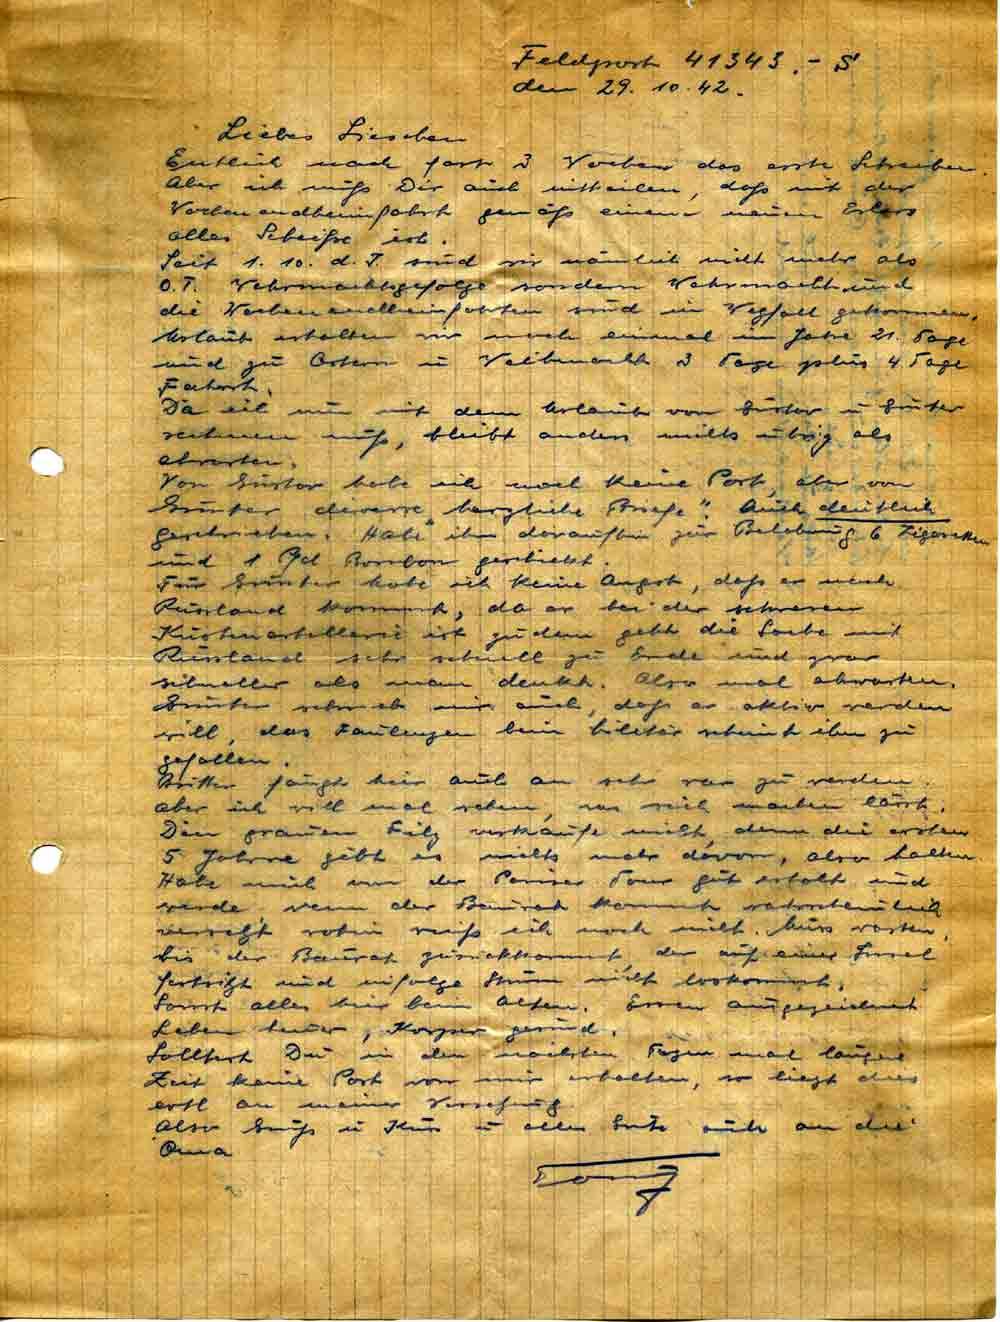 Feldpost 41343.- S
den 29. 10. 42.
Liebes Lieschen
Entlich nach fast 3 Wochen das erste Schreiben.
Aber ich muss Dir auch mitteilen, dass mit der
Wochenendheimfahrt gemäss einem neuen Erlass
alles Scheisse ist.
Seit 1. 10. d. J. sind wir nämlich nicht mehr als
O.T. Wehrmachtsgefolge sondern Wehrmacht und
die Wochenendheimfahrten sind in Wegfall gekommen.
Urlaub erhalten wir noch einmal im Jahre 21. Tage
und zu Ostern u Weihnacht 3 Tage plus 4 Tage
Fahrt.
Da ich nun mit dem Urlaub von Gustav u Günter
rechnen muss, bleibt anders nichts übrig als
abwarten.
Von Gustav habe ich noch keine Post, aber von
Günter diverse herzliche Briefe". Auch deutlich
geschrieben. Habe ihm daraufhin zur Belobung 6 Zigaretten
und 1 Pfd Bonbon geschickt.
Für Günter habe ich keine Angst, dass er nach
Russland kommt, da er bei der schweren
Küstenartellerie ist zudem geht die Sache mit
Russland sehr schnell zu Ende und zwar
schneller als man denkt. Also mal abwarten.
Günter schrieb mir auch, dass er aktiv werden
will, das Faulenzen beim Militär scheint ihm zu
gefallen.
Butter fängt hier auch an sehr rar zu werden
aber ich will mal sehen, was sich machen lässt.
Den grauen Filz verkaufe nicht, denn die ersten
5 Jahre gibt es nichts mehr davon, also halten.
Habe mich von der Pariser Tour gut erholt und
werde wenn der Baurat kommt wahrscheinlich
versetzt wohin weiss ich noch nicht. Muss warten,
bis der Baurat zurückkommt, der auf einer Insel
festsitzt und infolge Sturm nicht loskommt.
Sonst alles hier beim Alten. Essen ausgezeichnet
Leben teuer, Körper gesund.
Solltest Du in den nächsten Tagen mal längere
Zeit keine Post von mir erhalten, so liegt dies
evtl an meiner Versetzung
Also Gruss u Kuss u alles Gute auch an die
Oma